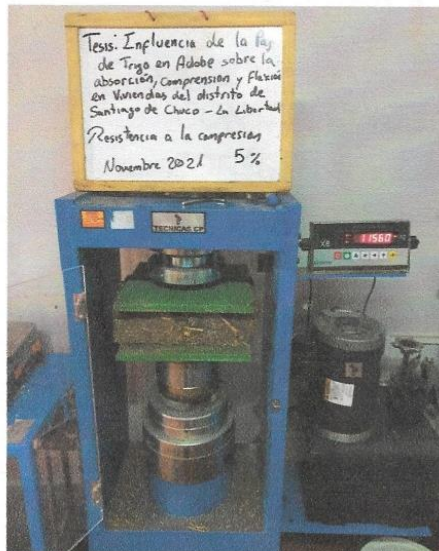 Tesis: Influencia de la Paja
de Trigo en Adobe sobre la
absorción, Comprension y Flexión
en Viviendas del distrito de
Santiago de Chuco - La Libertad
Resistencia a la compresion
Noviembre 2021 5%
TECNICAS CP
11560